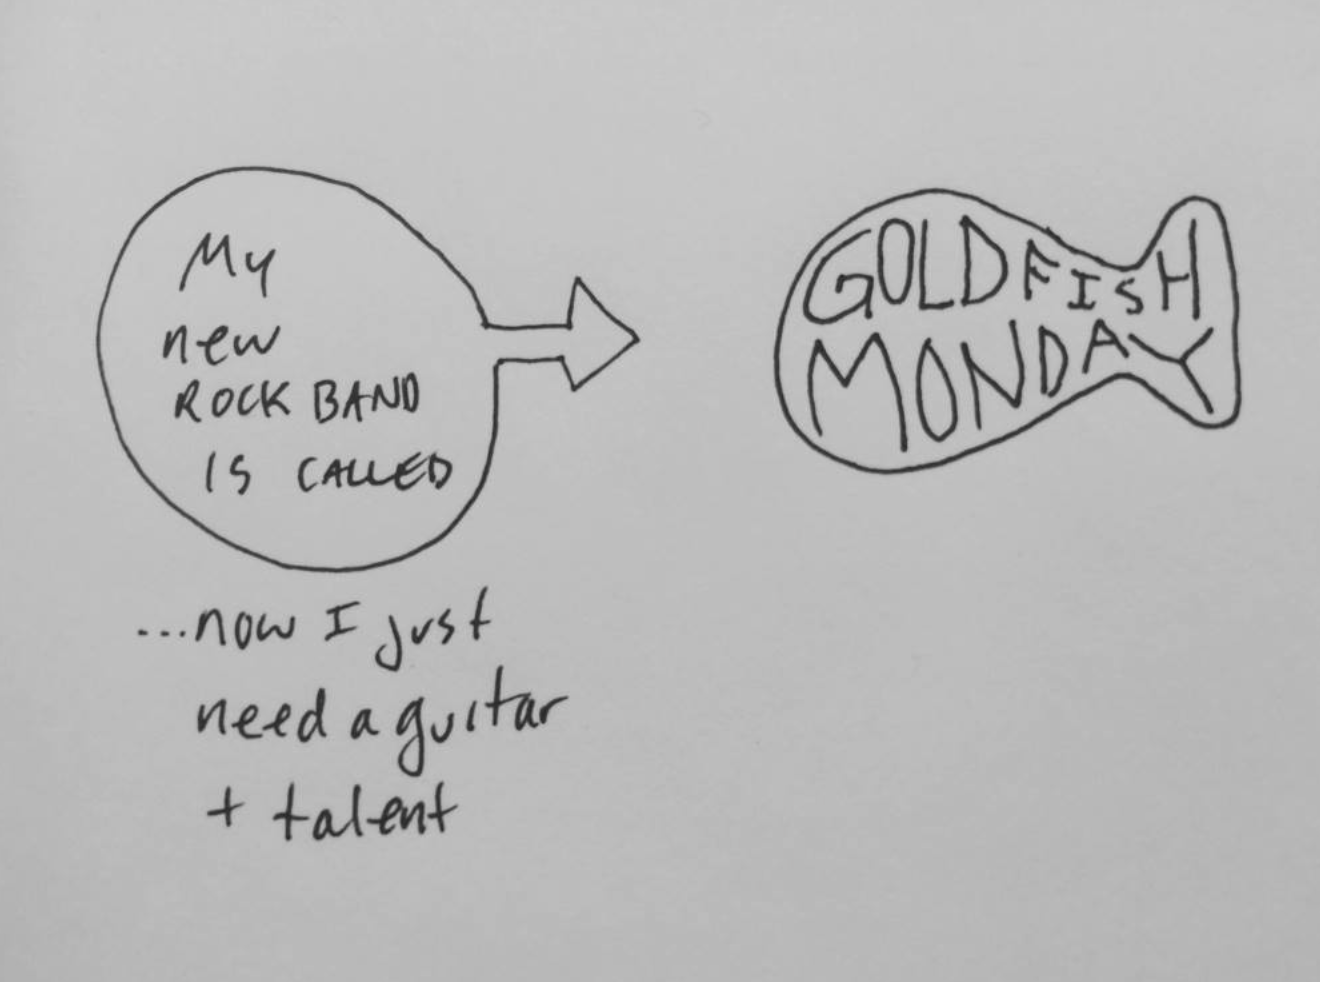 My
new
ROCK BAND
IS CALLED
GOLDFISH
MONDAY
...now I just
need a guitar
+ talent